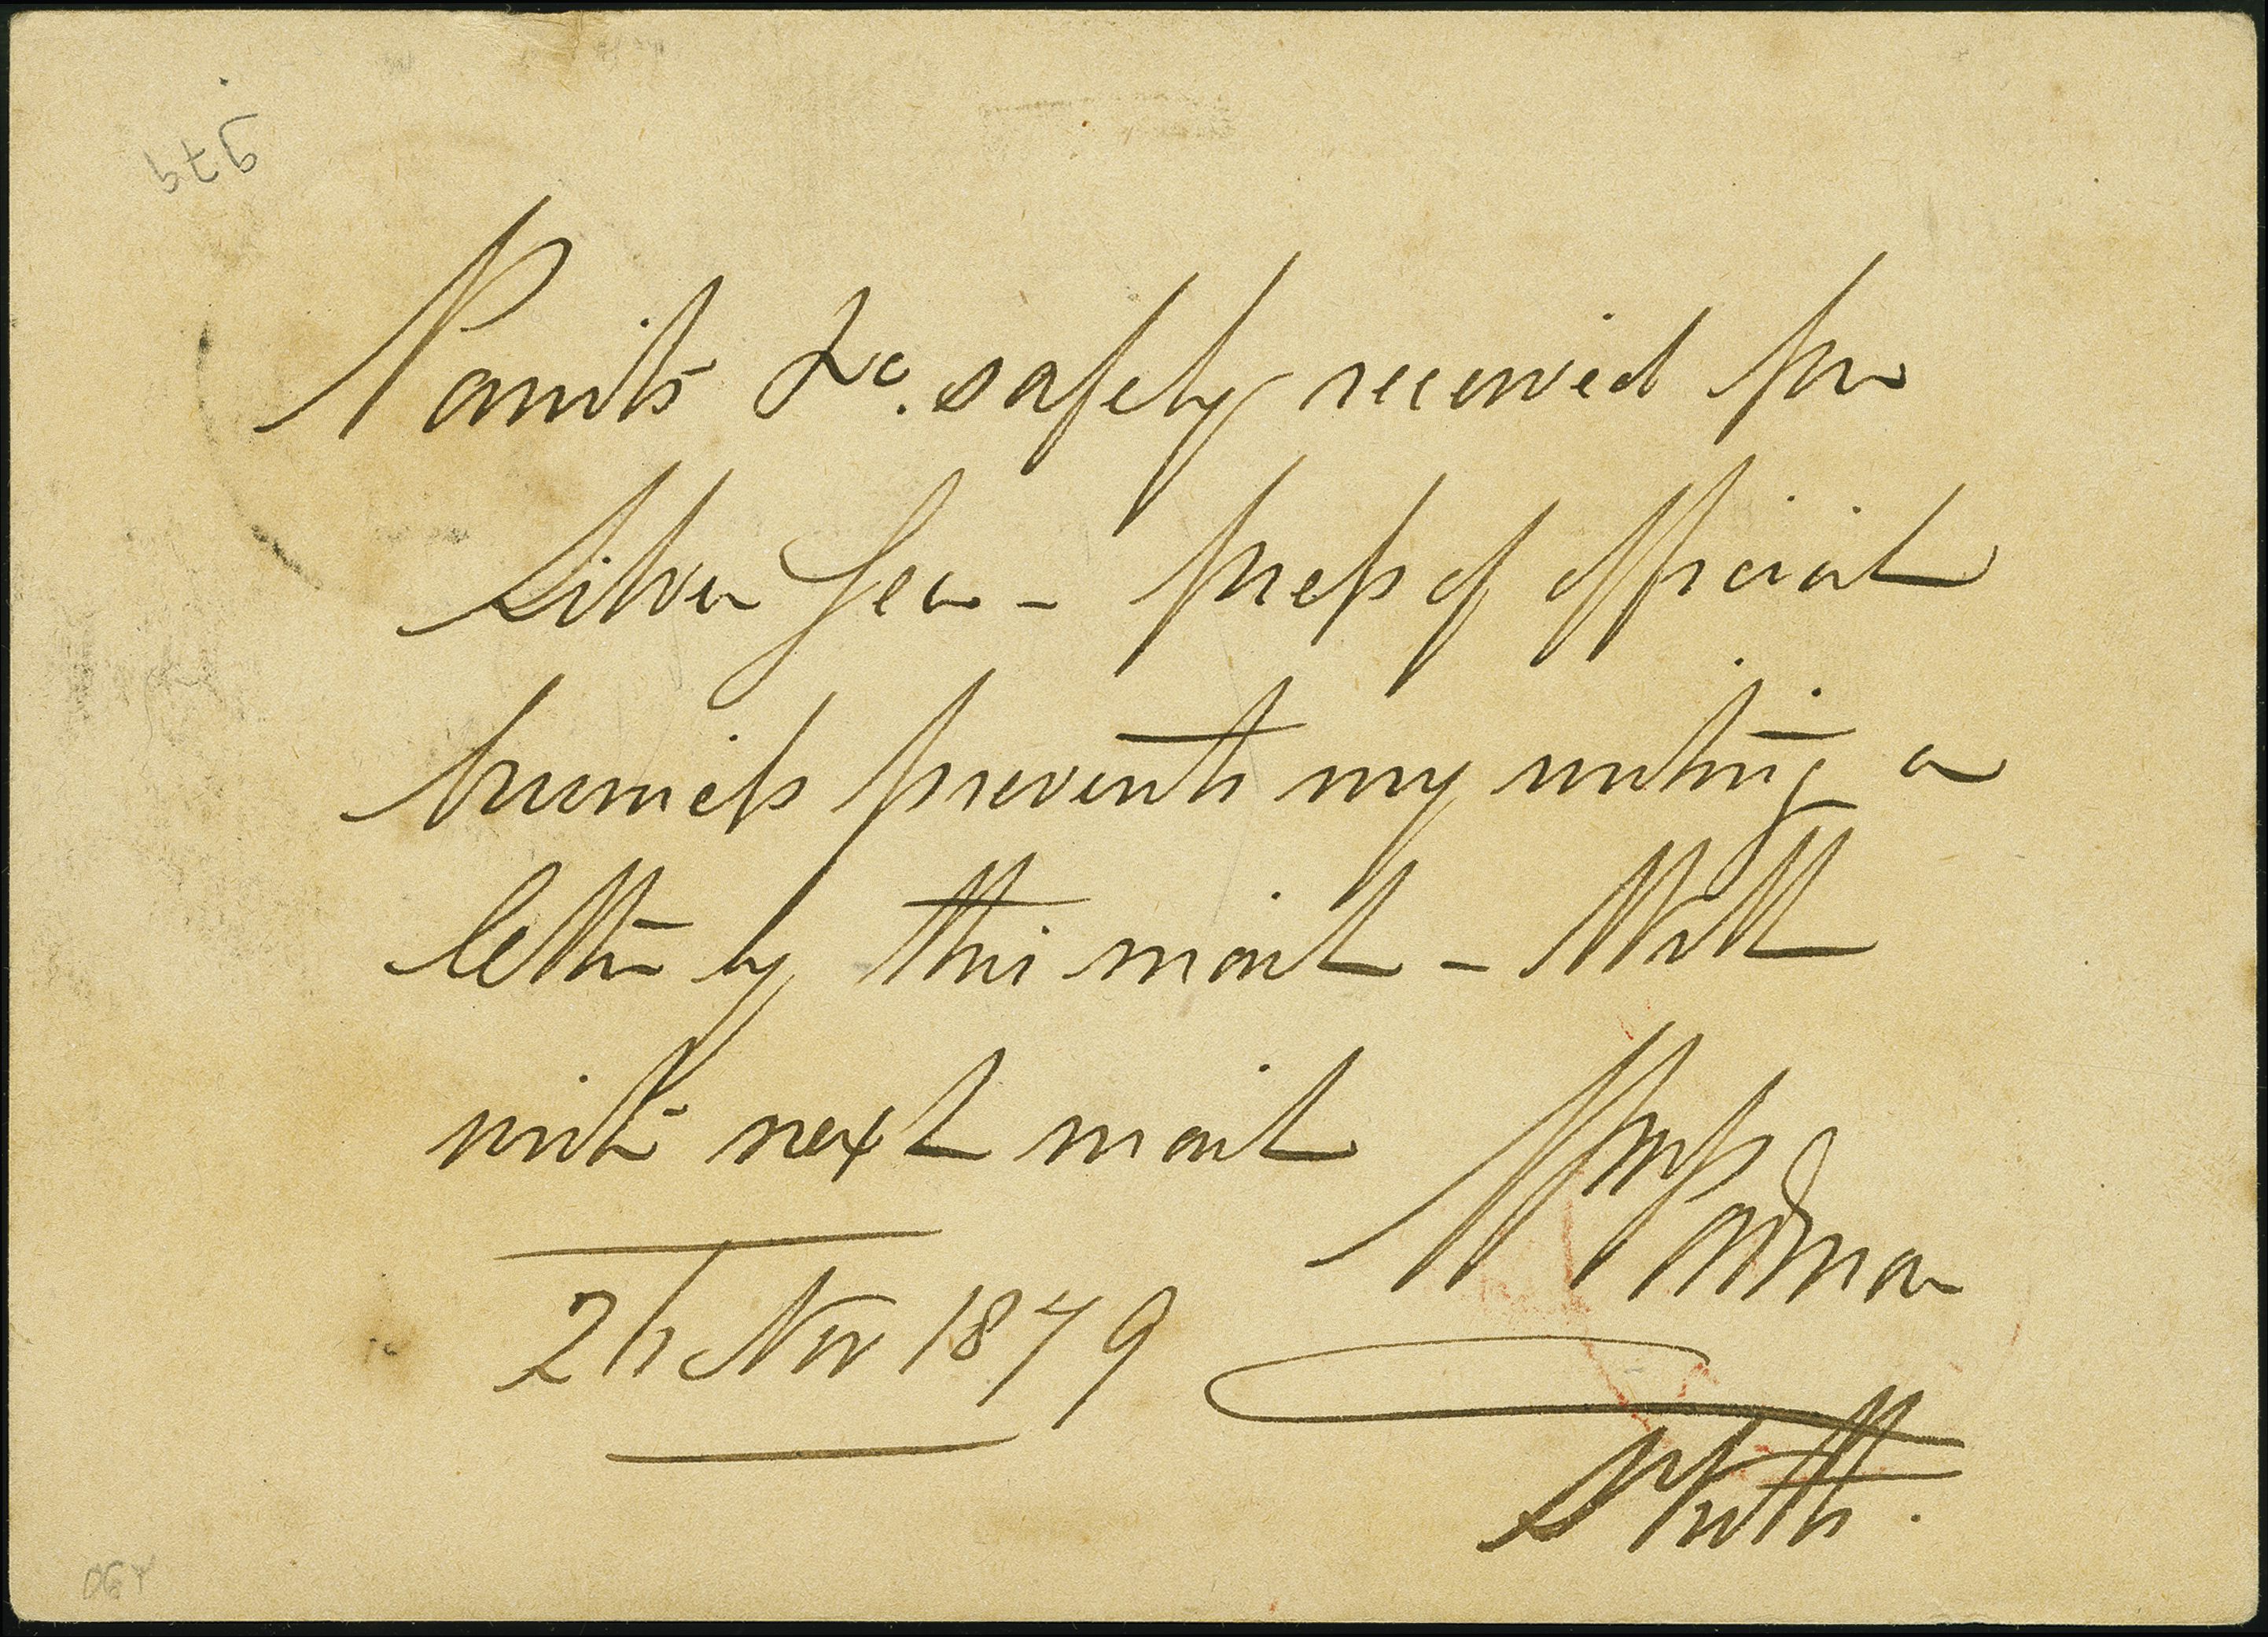 Paints &c. safely received per
Silver Sea - press of official
business prevents my writing a
letter by this mail - Will
write next mail
Nov 1879